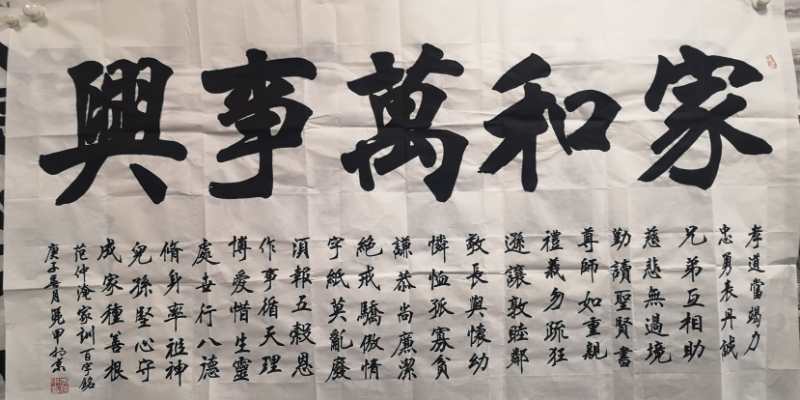 家和萬事興
孝道當竭力
忠勇表丹誠
兄弟互相助
慈悲無過境
勤讀聖賢書
尊師如重親
禮義勿疏狂
遜讓敦睦鄰
敬長與懷幼
憐恤孤寡貧
謙恭尚廉潔
絕戒驕傲情
字紙莫亂廢
須報五穀恩
作事循天理
博愛惜生靈
處世行八德
脩身率祖神
兒孫堅心守
成家種善根
范仲淹家訓百字銘
庚子